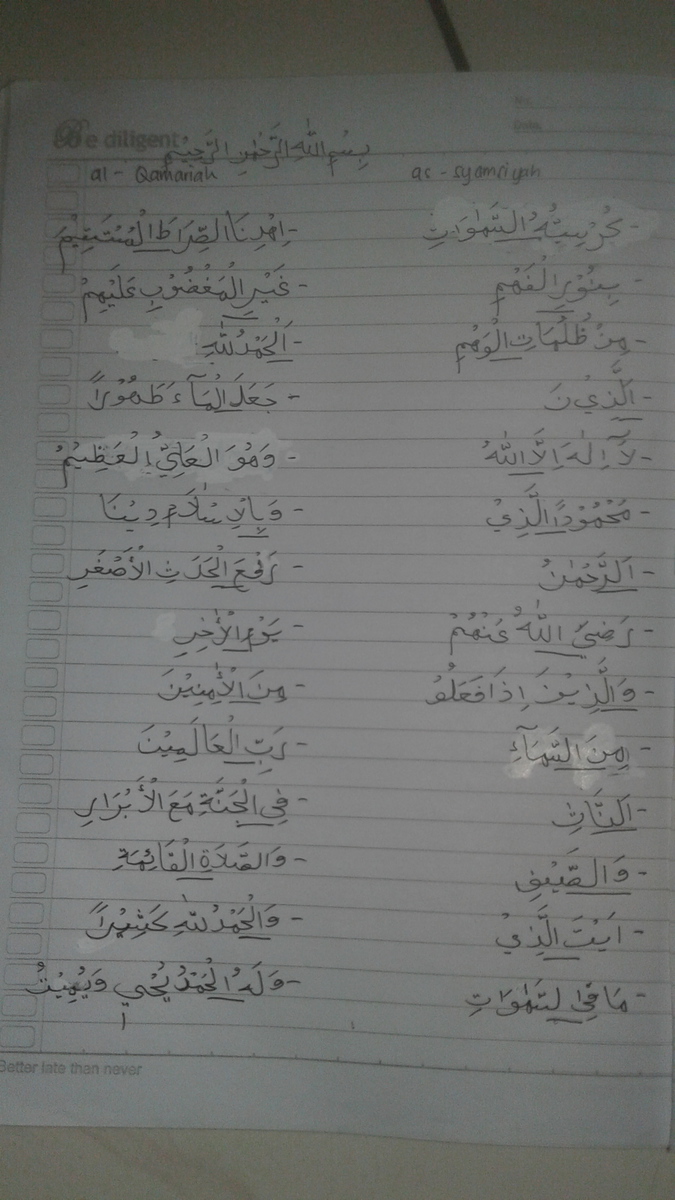 No:
Date:
Be diligent
بِسْمِ اللّٰهِ الرَّحْمٰنِ الرَّحِيْمِ
as - syamsiyah
al - Qamariah
- كُرْسِيُّهُ السَّمٰوَاتِ
- بِنُوْرِ الْفَهْمِ
- مِنْ ظُلُمَاتِ الْوَهْمِ
- اَلَّذِيْنَ
- لَآ اِلٰهَ اِلَّا اللّٰهُ
- مَحْمُوْدًا الَّذِيْ
- اَلرَّحْمٰنُ
- رَضِيَ اللّٰهُ عَنْهُمْ
- وَالَّذِيْنَ اِذَا فَعَلُوْ
- مِنَ السَّمَآءِ
- اَلنَّاسِ
- وَالصَّيْفِ
- اَيْتَ الَّذِيْ
- مَا فِى السَّمٰوَاتِ
- اِهْدِنَا الصِّرَاطَ الْمُسْتَقِيْمَ
- غَيْرِ الْمَغْضُوْبِ عَلَيْهِمْ
- اَلْحَمْدُ لِلّٰهِ
- جَعَلَ الْمَآءَ طَهُوْرًا
- وَهُوَ الْعَلِيُّ الْعَظِيْمُ
- وَبِالْاِسْلَامِ دِيْنًا
- رَفْعَ الْحَدَثِ الْأَصْغَرِ
- يَوْمِ الْأٰخِرِ
- مِنَ الْأٰمِنِيْنَ
- رَبِّ الْعَالَمِيْنَ
- فِي الْجَنَّةِ مَعَ الْأَبْرَارِ
- وَالصَّلَاةِ الْقَائِمَةِ
- وَالْحَمْدُ لِلّٰهِ كَثِيْرًا
- وَلَهُ الْحَمْدُ يُحْيِي وَيُمِيْتُ
Better late than never